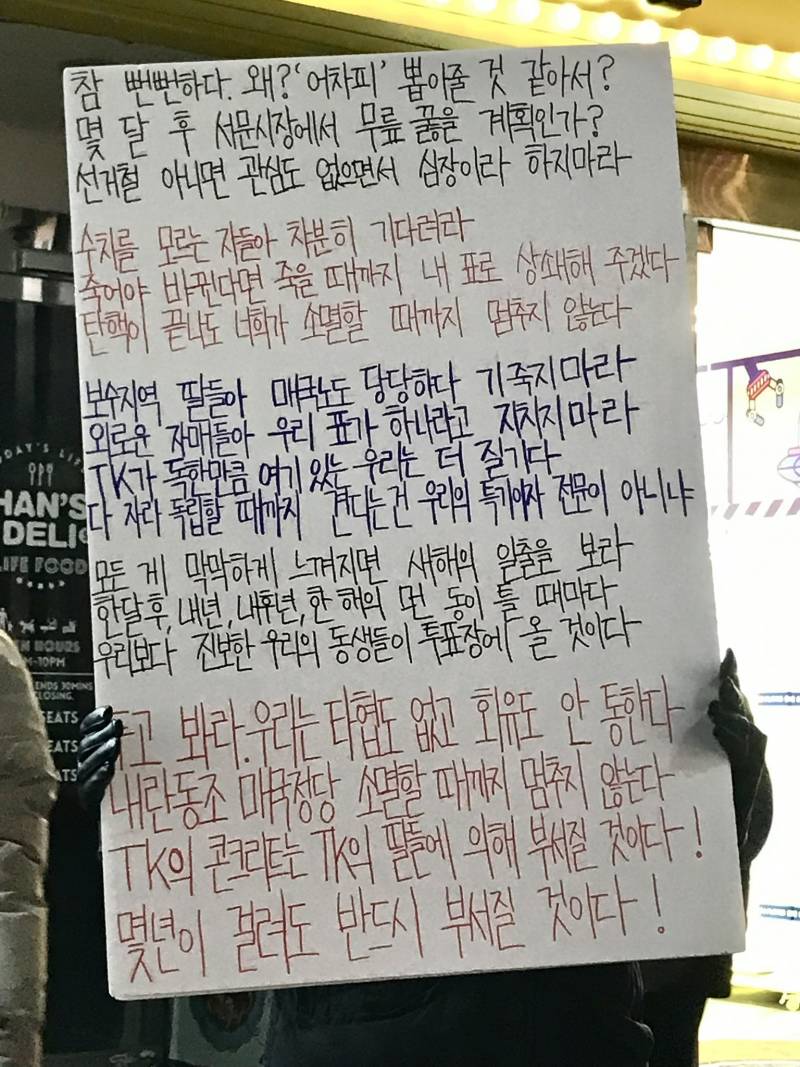 참 뻔뻔하다. 왜? '어차피' 뽑아줄 것 같아서?
몇 달 후 서문시장에서 무릎 꿇을 계획인가?
선거철 아니면 관심도 없으면서 심장이라 하지마라
수치를 모르는 자들아 차분히 기다려라
죽어야 바뀐다면 죽을 때까지 내 표로 상쇄해 주겠다
탄핵이 끝나도 너희가 소멸할 때까지 멈추지 않는다
보수지역 딸들아 매국노도 당당하다 기죽지마라
외로운 자매들아 우리 표가 하나라고 지치지마라
TK가 독한만큼 여기 있는 우리는 더 질기다
다 자라 독립할 때까지 견디는건 우리의 특기이자 전문이 아니냐
모든 게 막막하게 느껴지면 새해의 일출을 보라
한달 후, 내년, 내후년, 한 해의 먼 동이 틀 때마다
우리보다 진보한 우리의 동생들이 투표장에 올 것이다
두고 봐라. 우리는 타협도 없고 회유도 안 통한다
내란동조 매국정당 소멸할 때까지 멈추지 않는다
TK의 콘크리트는 TK의 딸들에 의해 부서질 것이다!
몇년이 걸려도 반드시 부서질 것이다!
HAN'S
DELI
LIFE FOOD
HOURS
-10PM
ENDS 30MINS
CLOSING.
SEATS